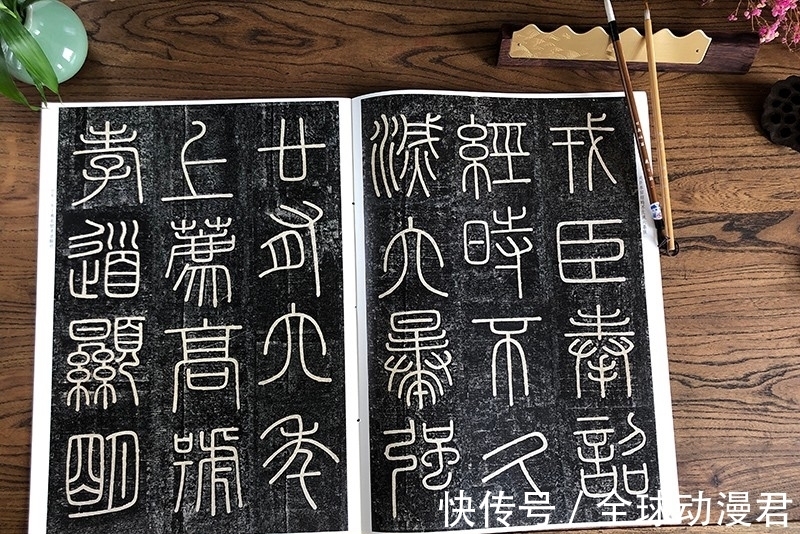 戎臣奉詔
經時不久
滅六暴強
廿有六年
上薦高號
孝道顯明
快传号 / 全球动漫君